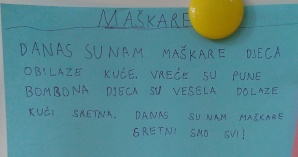 MAŠKARE
DANAS SU NAM MAŠKARE DJECA
OBILAZE KUĆE. VREĆE SU PUNE
BOMBONA DJECA SU VESELA DOLAZE
KUĆI SRETNA. DANAS SU NAM MAŠKARE
SRETNI SMO SVI!